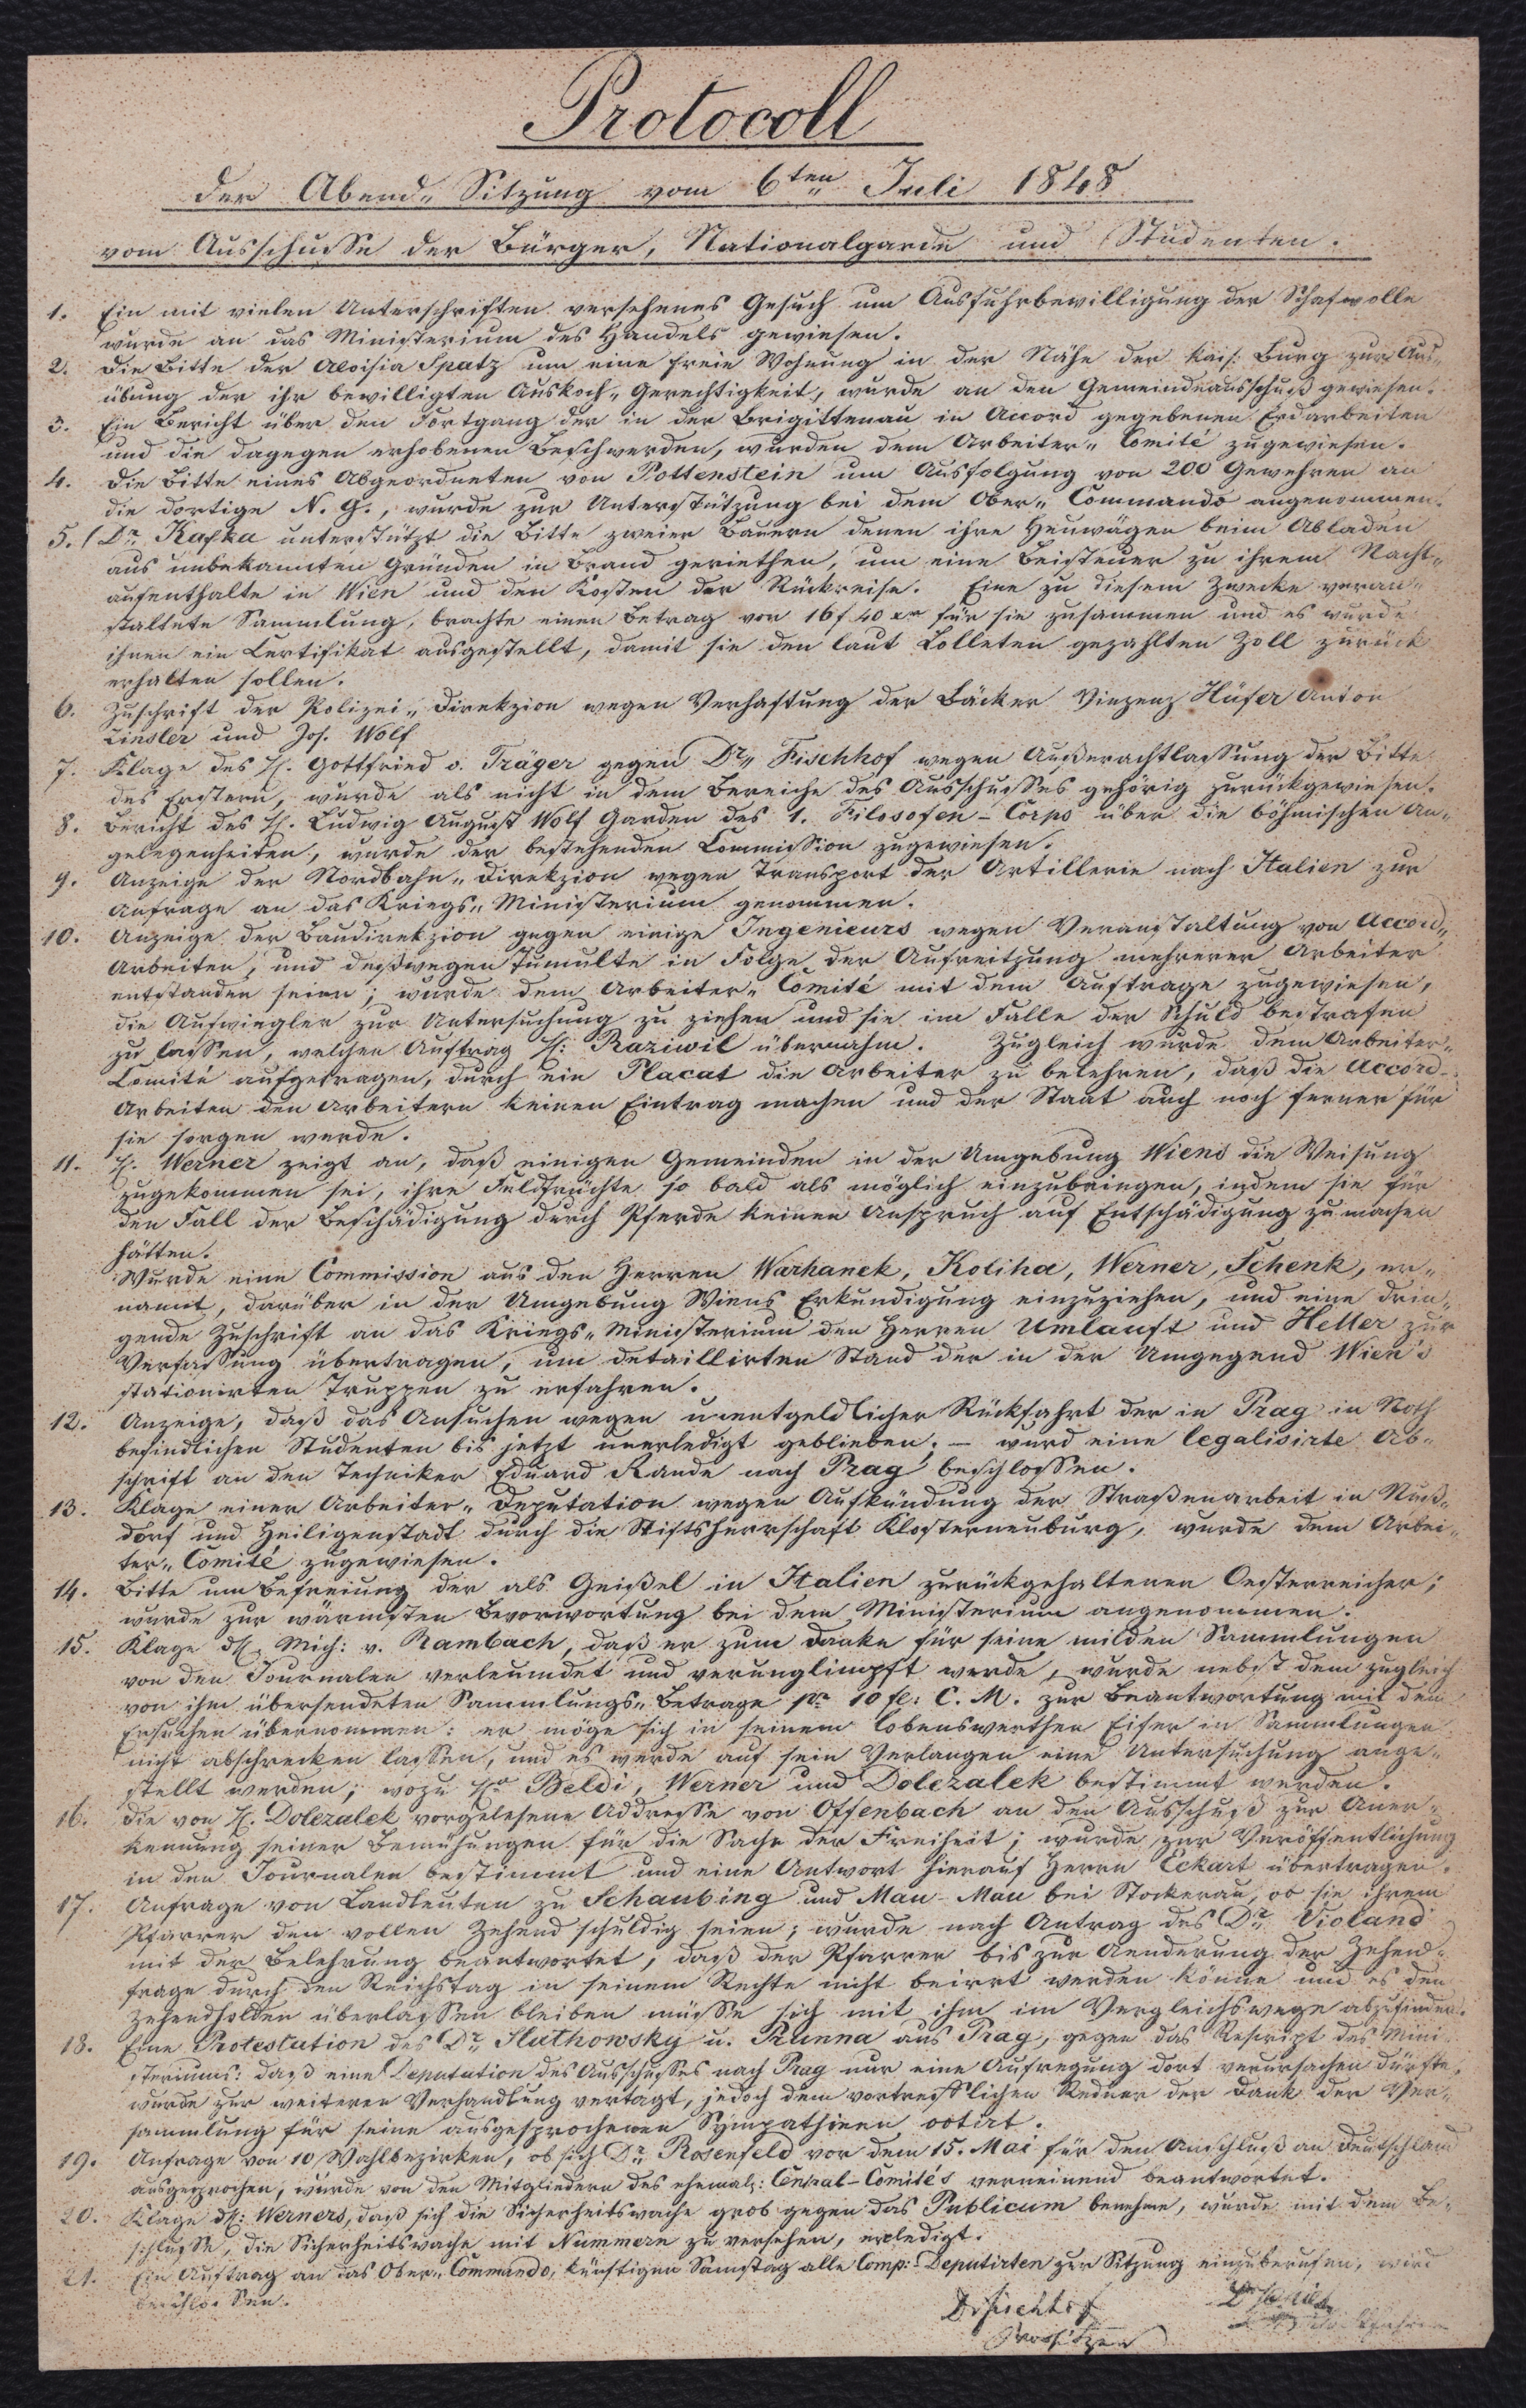 Protocoll
der Abend„ Sitzung vom 6ten Juli 1848
vom Ausschusse der Bürger, Nationalgarde und Studenten.
1. Ein mit vielen Unterschriften versehenes Gesuch um Ausfuhrbewilligung der Schafwolle
wurde an das Ministerium des Handels gewiesen.
2. Die Bitte der Aloisia Spatz um eine freie Wohnung in der Nähe der kais: Burg zur Aus„
übung der ihr bewilligten Auskoch„ Gerechtigkeit, wurde an den Gemeindeausschuß gewiesen.
3. Ein Bericht über den Fortgang der in der Brigittenau in Accord gegebenen Erdarbeiten
und die dagegen erhobenen Beschwerden, wurden dem Arbeiter„ Comité zugewiesen.
4. Die Bitte eines Abgeordneten von Pottenstein um Ausfolgung von 200 Gewehren an
die dortige N. G., wurde zur Unterstützung bei dem Ober„ Commando angenommen.
5. Dr. Kafka unterstützt die Bitte zweier Bauern denen ihre Heuwägen beim Abladen
aus unbekannten Gründen in Brand geriethen, um eine Beisteuer zu ihrem Nacht„
aufenthalte in Wien und den Kosten der Rückreise. Eine zu diesem Zwecke veran„
staltete Sammlung, brachte einen Betrag von 16 f 40 xr für sie zusammen und es wurde
ihnen ein Certifikat ausgestellt, damit sie den laut Bolleten gezahlten Zoll zurück
erhalten sollen.
6. Zuschrift der Polizei„ Direkzion wegen Verhaftung der Bäcker Vinzenz Hüfer Anton
Zinsler und Jos. Wolf
7. Klage des H. Gottfried v. Träger gegen Dr. Fischhof wegen Außerachtlassung der Bitte
des Erstern, wurde als nicht in dem Bereiche des Ausschusses gehörig zurückgewiesen.
8. Bericht des H. Ludwig August Wolf Garden des 1. Filosofen-Corps über die böhmischen An„
gelegenheiten, wurde der bestehenden Commission zugewiesen.
9. Anzeige der Nordbahn„ Direkzion wegen Transport der Artillerie nach Italien zur
Anfrage an das Kriegs„ Ministerium genommen.
10. Anzeige der Baudirekzion gegen einige Ingenieurs wegen Veranstaltung von Accord„
Arbeiten, und deßwegen Tumulte in Folge der Aufreitzung mehrerer Arbeiter
entstanden seien; wurde dem Arbeiter„ Comité mit dem Auftrage zugewiesen,
die Aufwiegler zur Untersuchung zu ziehen und sie im Falle der Schuld bestrafen
zu lassen, welchen Auftrag H: Raziwil übernahm. Zugleich wurde dem Arbeiter„
Comité aufgetragen, durch ein Placat die Arbeiter zu belehren, daß die Accord-
Arbeiten den Arbeitern keinen Eintrag machen und der Staat auch noch ferner für
sie sorgen werde.
11. H. Werner zeigt an, daß einigen Gemeinden in der Umgebung Wiens die Weisung
zugekommen sei, ihre Feldfrüchte so bald als möglich einzubringen, indem sie für
den Fall der Beschädigung durch Pferde keinen Anspruch auf Entschädigung zu machen
hätten.
Wurde eine Commission aus den Herren Warhanek, Koliha, Werner, Schenk, er„
nannt, darüber in der Umgebung Wiens Erkundigung einzuziehen, und eine drin„
gende Zuschrift an das Kriegs„ Ministerium den Herren Umlauft und Heller zur
Verfassung übertragen, um detaillirten Stand der in der Umgegend Wien's
stationirten Truppen zu erfahren.
12. Anzeige, daß das Ansuchen wegen unentgeldlicher Rückfahrt der in Prag in Noth
befindlichen Studenten bis jetzt unerledigt geblieben; – wurd eine legalisirte Ab„
schrift an den Techniker Eduard Rande nach Prag beschlossen.
13. Klage einer Arbeiter„ Deputation wegen Aufkündung der Straßenarbeit in Nuß„
dorf und Heiligenstadt durch die Stiftsherrschaft Klosterneuburg, wurde dem Arbei„
ter„ Comité zugewiesen.
14. Bitte um Befreiung der als Geißel in Italien zurückgehaltenen Oesterreicher;
wurde zur wärmsten Bevorwortung bei dem Ministerium angenommen.
15. Klage dH. Mich: v. Rambach, daß er zum Danke für seine milden Sammlungen
von den Journalen verleumdet und verunglimpft werde, wurde nebst dem zugleich
von ihm übersendeten Sammlungs„ Betrage pr 10 fl: C. M. zur Beantwortung mit dem
Ersuchen übernommen: er möge sich in seinem lobenswerthen Eifer in Sammlungen
nicht abschrecken lassen, und es werde auf sein Verlangen eine Untersuchung ange„
stellt werden; wozu H. Beldi, Werner und Dolezalek bestimmt werden.
16. Die von H. Dolezalek vorgelesene Addresse von Offenbach an den Ausschuß zur Aner„
kennung seiner Bemühungen für die Sache der Freiheit; wurde zur Veröffentlichung
in den Journalen bestimmt und eine Antwort hierauf Herrn Eckart übertragen.
17. Anfrage von Landleuten zu Schaubing und Mau-Mau bei Stockerau, ob sie ihrem
Pfarrer den vollen Zehend schuldig seien; wurde nach Antrag des Dr. Violand
mit der Belehrung beantwortet, daß der Pfarrer bis zur Aenderung der Zehend-
frage durch den Reichstag in seinem Rechte nicht beirrt werden könne und es den
Zehendholden überlassen bleiben müsse sich mit ihm im Vergleichswege abzufinden.
18. Eine Protestation des Dr. Huthowsky u. Runna aus Prag, gegen das Rescript des Mini„
steriums: daß eine Deputation des Ausschusses nach Prag nur eine Aufregung dort verursachen dürfte,
wurde zur weiteren Verhandlung vertagt, jedoch dem vortrefflichen Redner der Dank der Ver„
sammlung für seine ausgesprochenen Sympathieen votirt.
19. Anfrage von 10 Wahlbezirken, ob sich Dr. Rosenfeld vor dem 15. Mai für den Anschluß an Deutschland
ausgesprochen, wurde von den Mitgliedern des ehemal: Central-Comités verneinend beantwortet.
20. Klage dH: Werners, daß sich die Sicherheitswache grob gegen das Publicum benehme, wurde mit dem Be„
schlusse, die Sicherheitswache mit Nummern zu versehen, erledigt.
21. Ein Auftrag an das Ober„ Commando, künftigen Samstag alle Comp: Deputirten zur Sitzung einzuberufen, wird
beschlossen.
Dr Fischhof
Vorsitzer